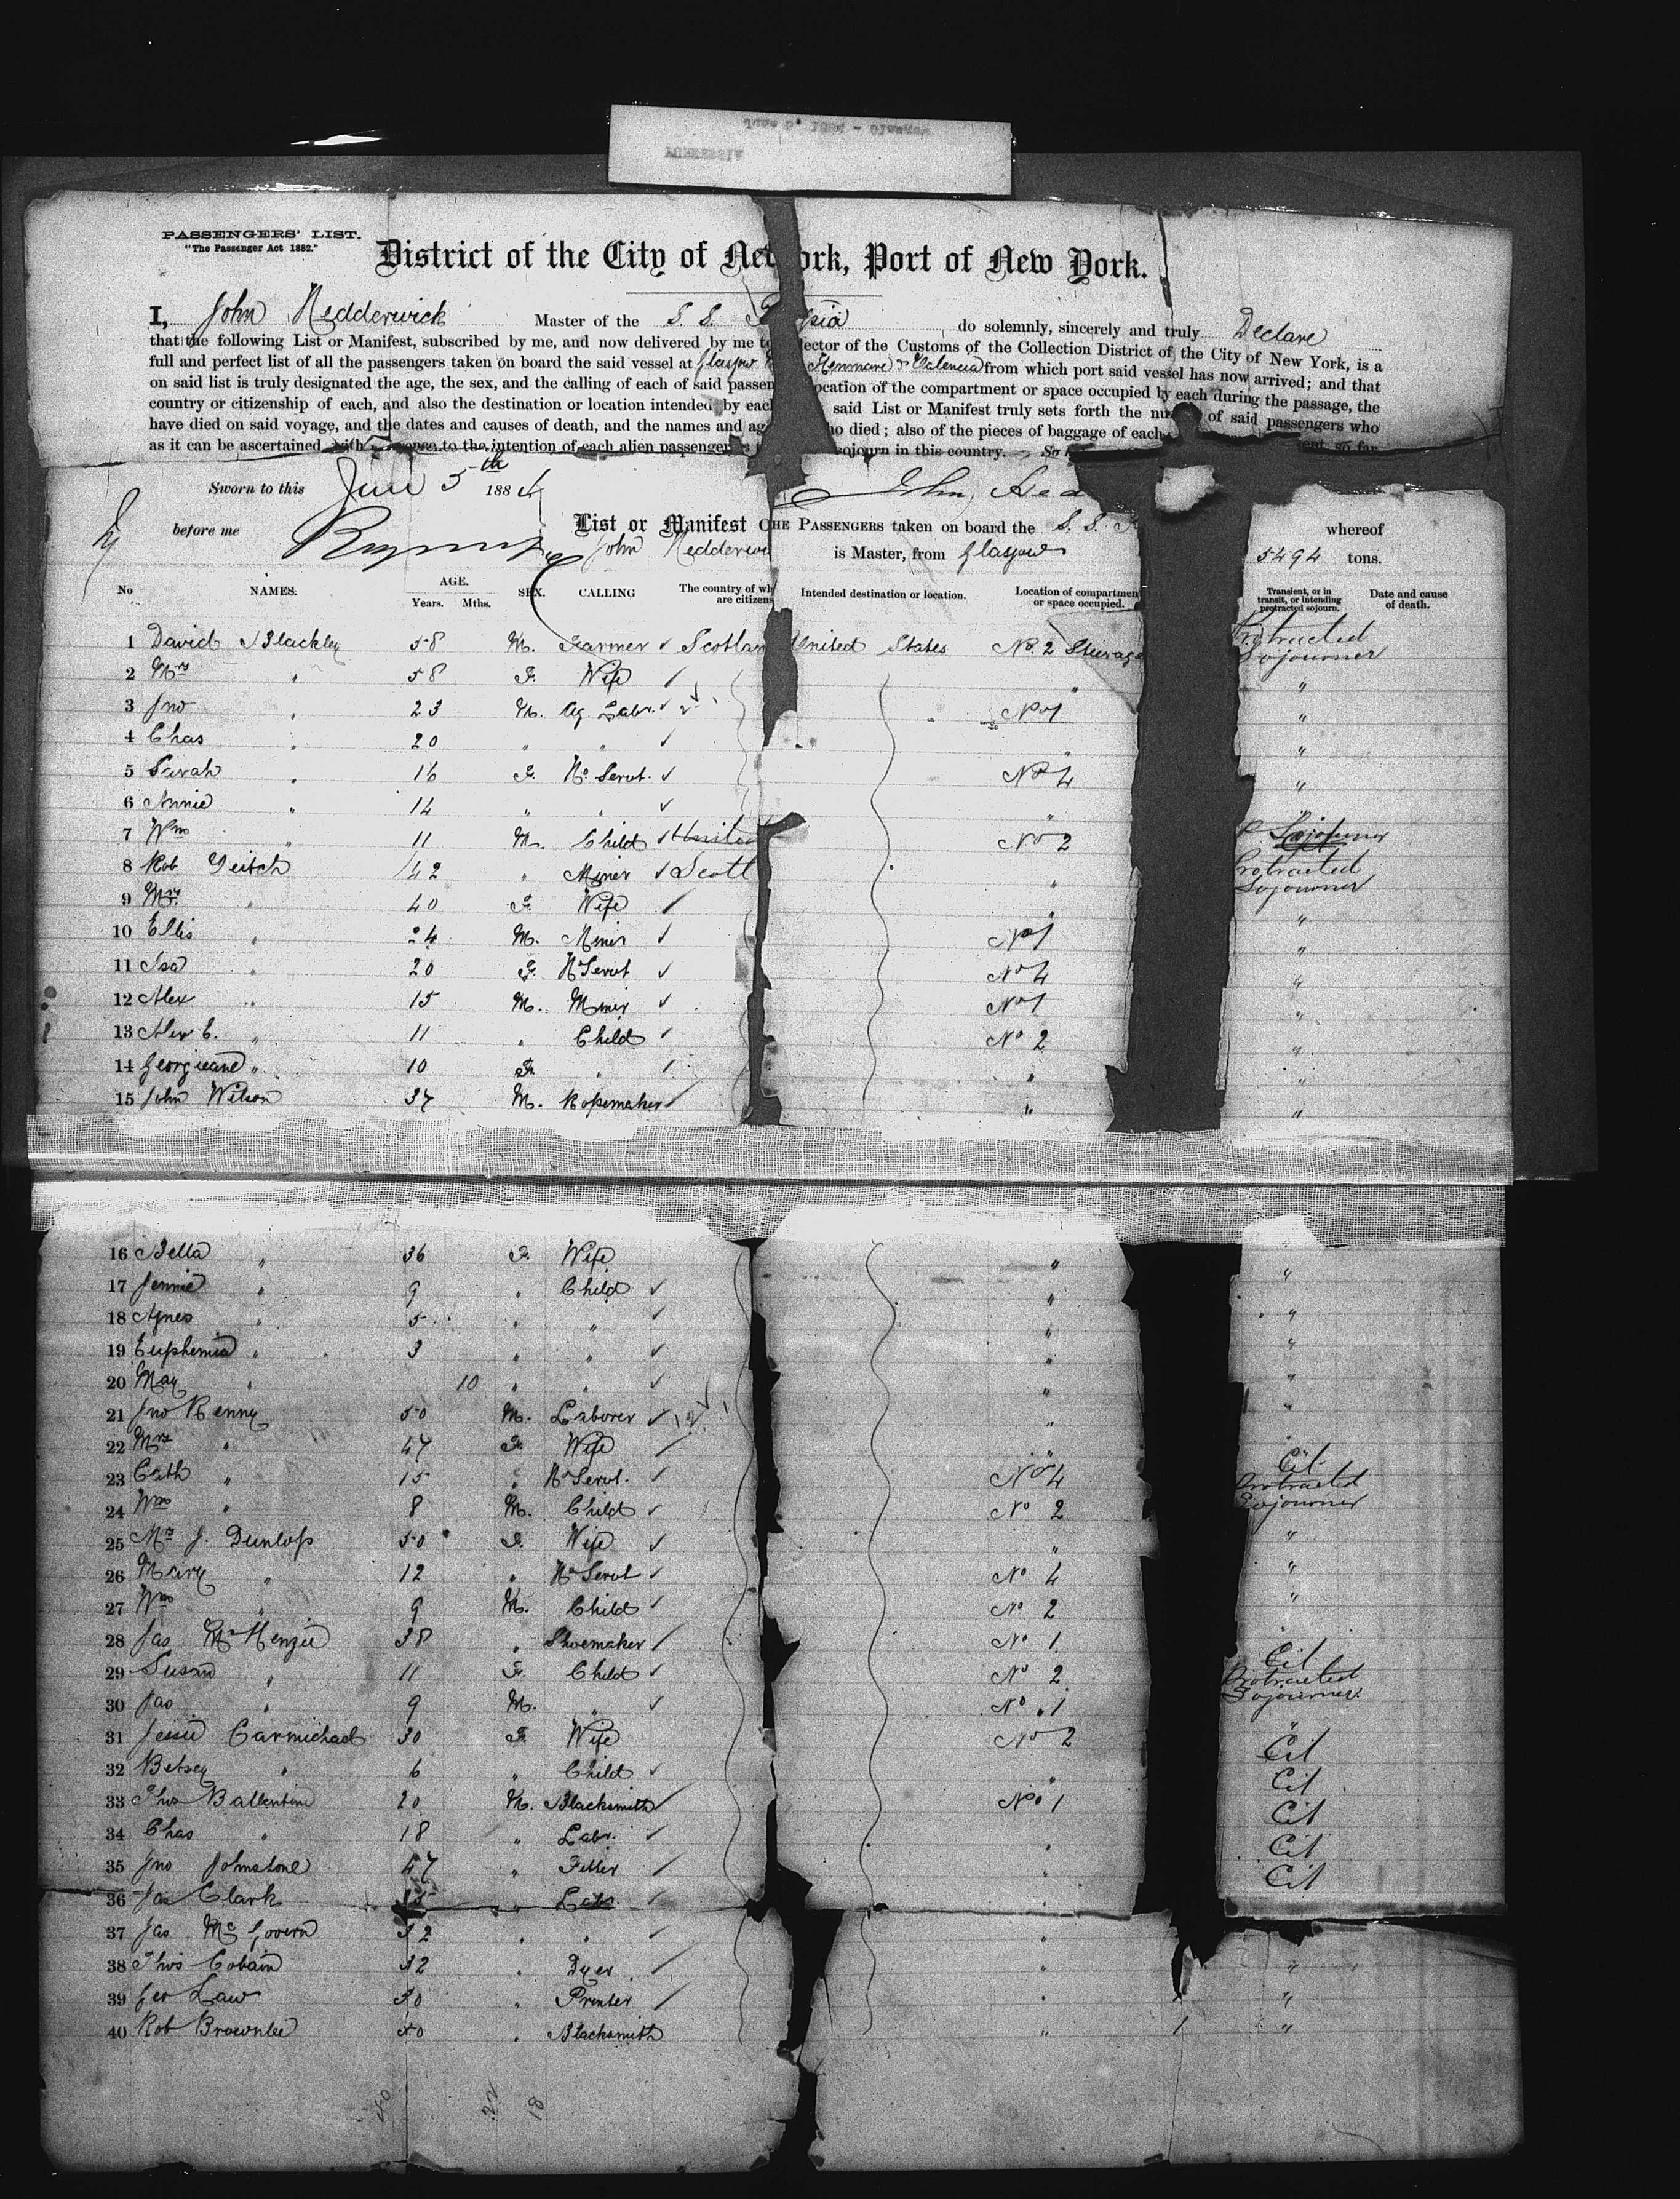 PASSENGERS' LIST.
"The Passenger Act 1882."
District of the City of Ne ork, Port of New York.
I, John Hedderwick Master of the S. S. sia do solemnly, sincerely and truly Declare
that the following List or Manifest, subscribed by me, and now delivered by me t lector of the Customs of the Collection District of the City of New York, is a
full and perfect list of all the passengers taken on board the said vessel at Glasgow & Valencia from which port said vessel has now arrived; and that
on said list is truly designated the age, the sex, and the calling of each of said passen ocation of the compartment or space occupied by each during the passage, the
country or citizenship of each, and also the destination or location intended by eac said List or Manifest truly sets forth the nu of said passengers who
have died on said voyage, and the dates and causes of death, and the names and ag ho died; also of the pieces of baggage of each
as it can be ascertained to the intention of each alien passenger sojourn in this country. So so far
Sworn to this 5th 1884 John Hed
before me
List or Manifest O HE PASSENGERS taken on board the S. S. whereof
John Hedderwi is Master, from Glasgow 5494 tons.
No NAMES. AGE. Years. Mths. SEX. CALLING The country of wh are citizen Intended destination or location. Location of compartmen or space occupied. Transient, or in transit, or intending protracted sojourn. Date and cause of death.
1 David Blackley 58 M. Farmer ✓ Scotlan United States No. 2 Steerage Protracted Sojourner
2 Mrs " 58 F. Wife ✓ " "
3 Jno " 23 M. Ag. Labr. ✓ No 1 "
4 Chas " 20 " " ✓ " "
5 Sarah " 16 F. H. Servt. ✓ No 4 "
6 Annie " 14 " " ✓ " "
7 Wm " 11 M. Child ✓ United No 2 P. Sojourner
8 Rob Yeitch 42 " Miner ✓ Scotl " Protracted Sojourner
9 Mrs " 40 F. Wife ✓ " "
10 Ellis " 24 M. Miner ✓ No 1 "
11 Isa " 20 F. H Servt ✓ No 4 "
12 Alex " 15 M. Miner ✓ No 1 "
13 Alex C. " 11 " Child ✓ No 2 "
14 Georgieana " 10 F. " ✓ " "
15 John Wilson 37 M. Ropemaker ✓ " "
16 Bella " 36 F. Wife " "
17 Jennie " 9 " Child ✓ " "
18 Agnes " 5 " " ✓ " "
19 Euphemia " 3 " " ✓ " "
20 May " 10 " " ✓ " "
21 Jno Renny 50 M. Laborer ✓ " "
22 Mrs " 47 F. Wife ✓ " "
23 Cath " 15 " H Servt. ✓ No 4 Cit Protracted
24 Wm " 8 M. Child ✓ No 2 Sojourner
25 Mrs J. Dunlop 50 F. Wife ✓ " "
26 Mary " 12 " H Servt ✓ No 4 "
27 Wm " 9 M. Child ✓ No 2 "
28 Jas McKenzie 38 " Shoemaker ✓ No 1 "
29 Susan " 11 F. Child ✓ No 2 Cit Protracted
30 Jas " 9 M. " ✓ No 1 Sojourner
31 Jessie Carmichael 30 F. Wife No 2 " Cit
32 Betsey " 6 " Child ✓ " Cit
33 Thos Ballentine 20 M. Blacksmith ✓ No 1 Cit
34 Chas " 18 " Labr. ✓ " Cit
35 Jno Johnstone 47 " Fitter ✓ " Cit
36 Jas Clark " Labr. ✓ "
37 Jas McGovern 32 " " ✓ "
38 Thos Cobain 32 " Dyer ✓ " "
39 Geo Law " Printer ✓ " "
40 Rob Brownlee " Blacksmith " "
40 22 18